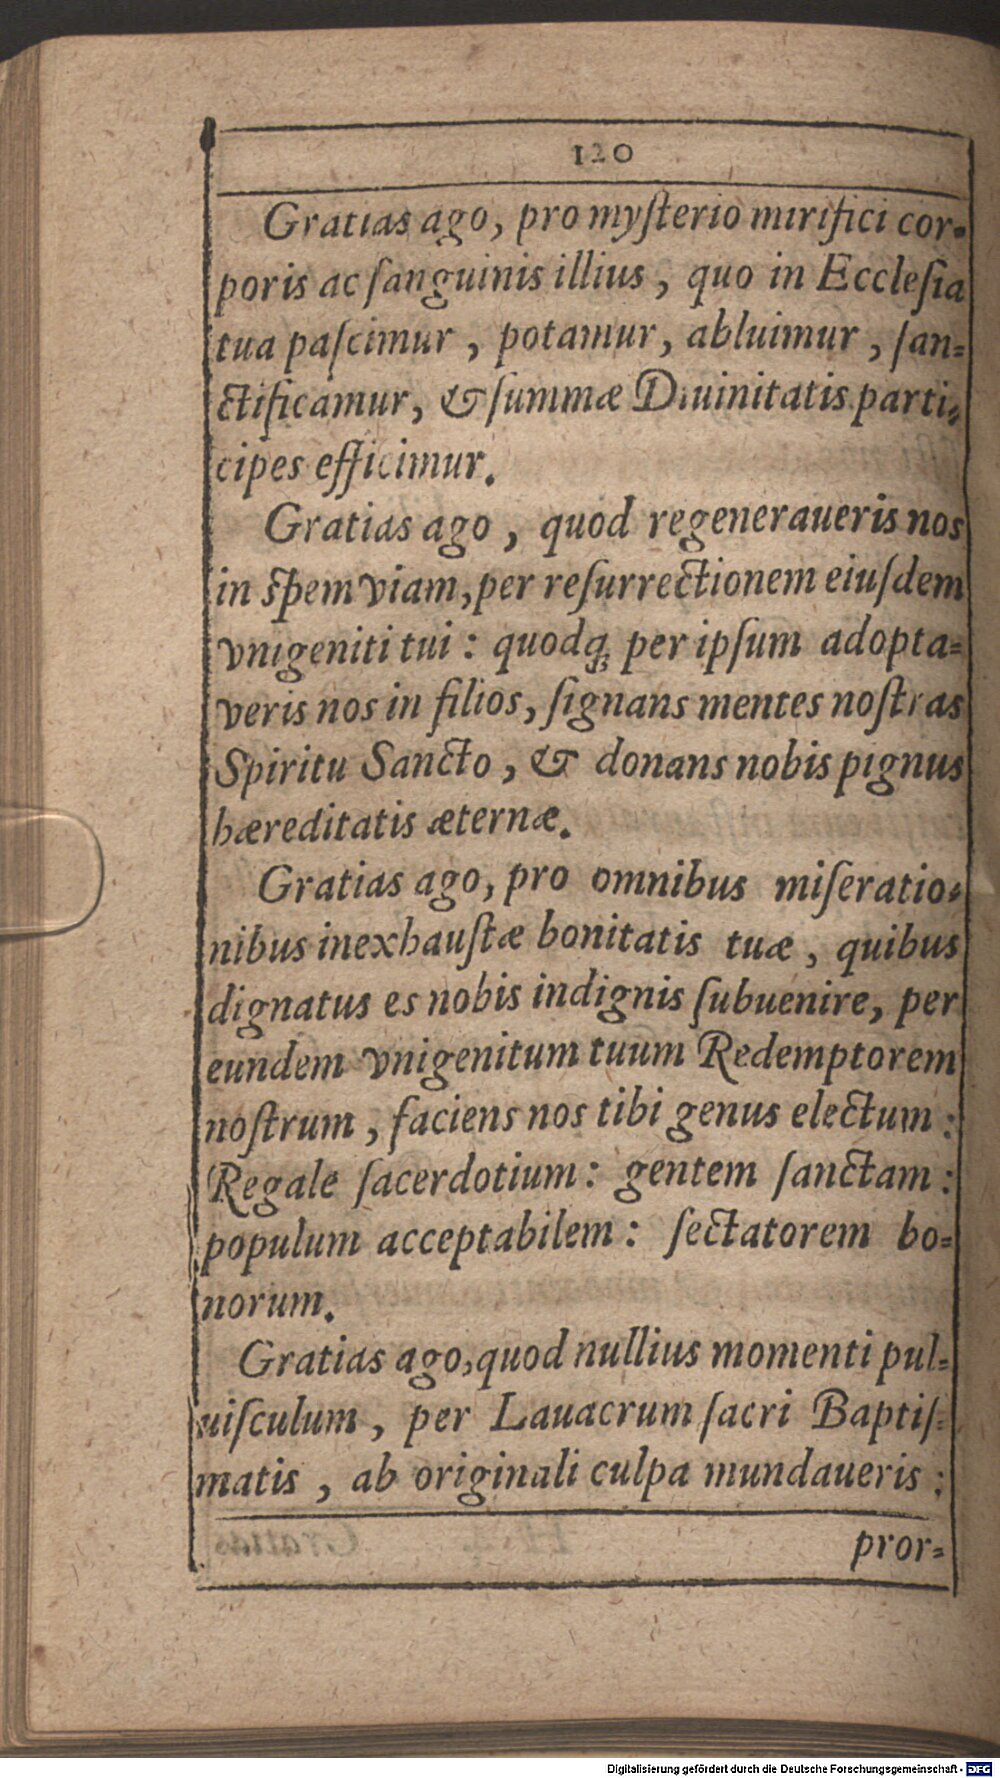 120
Gratias ago, pro myſterio mirifici cor-
poris ac ſanguinis illius, quo in Eccleſia
tua paſcimur, potamur, abluimur, ſan-
ctificamur, & ſummæ Diuinitatis parti-
cipes efficimur.
Gratias ago, quod regeneraueris nos
in ſpem viam, per reſurrectionem eiuſdem
vnigeniti tui: quodq; per ipſum adopta-
veris nos in filios, ſignans mentes noſtras
Spiritu Sancto, & donans nobis pignus
hæreditatis æternæ.
Gratias ago, pro omnibus miſeratio-
nibus inexhauſtæ bonitatis tuæ, quibus
dignatus es nobis indignis ſubuenire, per
eundem vnigenitum tuum Redemptorem
noſtrum, faciens nos tibi genus electum:
Regale ſacerdotium: gentem ſanctam:
populum acceptabilem: ſectatorem bo-
norum.
Gratias ago, quod nullius momenti pul-
uiſculum, per Lauacrum ſacri Baptiſ-
matis, ab originali culpa mundaueris:
pror-
Digitalisierung gefördert durch die Deutsche Forschungsgemeinschaft - DFG